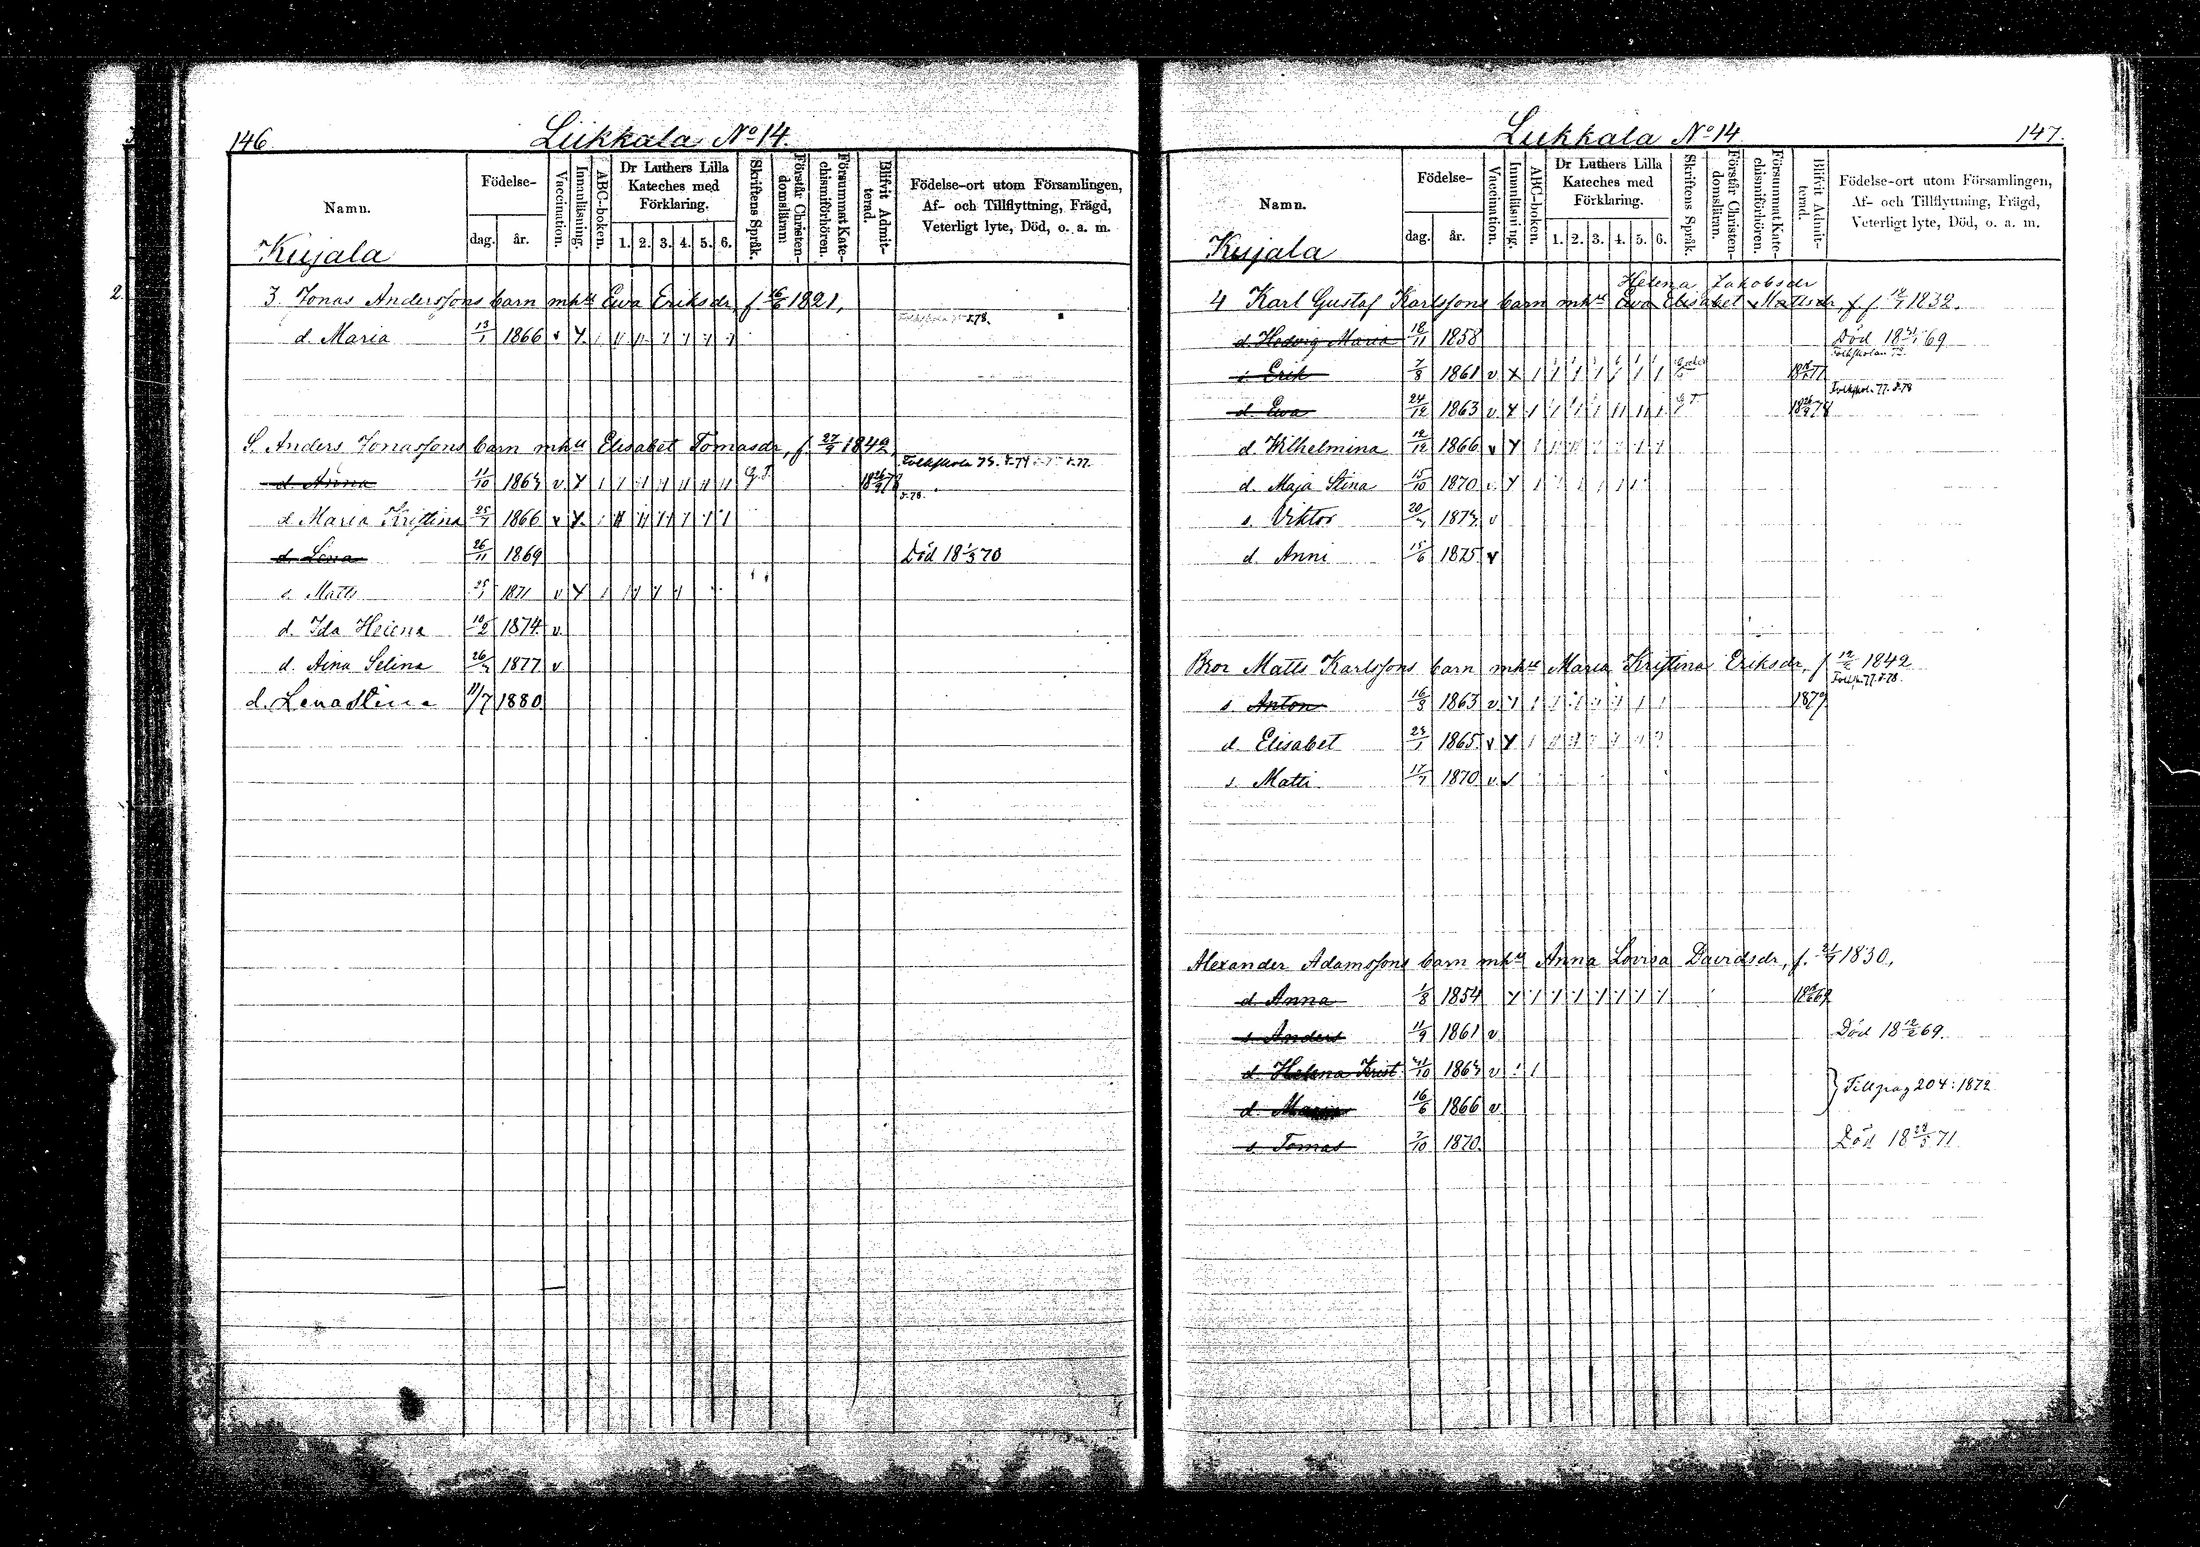 146
Liikkala No 14.
Namn.
Födelse-
dag.
år.
Vaccination.
Innanläsning.
ABC-boken.
Dr Luthers Lilla Kateches med Förklaring.
1. 2. 3. 4. 5. 6.
Skriftens Språk.
Förstår Christendomsläran.
Försummat Katechismiförhören.
Blifvit Admitterad.
Födelse-ort utom Församlingen, Af- och Tillflyttning, Frägd, Veterligt lyte, Död, o. a. m.
Kujala
3 Jonas Anderssons barn mhu Ewa Eriksdr, f. 16/6 1821,
d. Maria 13/1 1866 v
S. Anders Jonassons barn mhu Elisabet Tomasdr, f. 27/9 1842,
d. Anna 11/10 1863 v. g.T.
d. Maria Kristina 25/1 1866 v
d. Lena 26/11 1869 Död 18 1/3 70
s. Matts 1871 v
d. Ida Helena 10/2 1874 v.
d. Aina Selina 26/3 1877 v
d. Lena Stina 11/7 1880
Liikkala No 14
147.
Namn.
Födelse-
dag.
år.
Vaccination.
Innanläsning.
ABC-boken.
Dr Luthers Lilla Kateches med Förklaring.
1. 2. 3. 4. 5. 6.
Skriftens Språk.
Förstår Christendomsläran.
Försummat Katechismiförhören.
Blifvit Admitterad.
Födelse-ort utom Församlingen, Af- och Tillflyttning, Frägd, Veterligt lyte, Död, o. a. m.
Kujala
Helena Jakobsdr
4 Karl Gustaf Karlssons barn mhu Ewa Elisabet Mattsdr, f. 1832.
d. Hedvig Maria 18/11 1858 Död 69
s. Erik 7/8 1861 v
d. Ewa 24/12 1863 v
d. Wilhelmina 12/12 1866 v
d. Maja Stina 15/10 1870
s. Viktor 20/3 1873 v
d. Anni 15/6 1875 v
Bror Matts Karlssons barn mhu Maria Kristina Eriksdr, f. 1842
s. Anton 16/3 1863 v 1879
d. Elisabet 1865 v
s. Matti 17/7 1870 v
Alexander Adamssons barn mhu Anna Lovisa Davidsdr, f. 1830,
d. Anna 1/8 1854
s. Anders 11/9 1861 v Död 18 12/2 69.
d. Helena Krist. 31/10 1863 v
Till pag 204: 1872
d. Maria 16/6 1866 v
s. Tomas 7/10 1870. Död 71